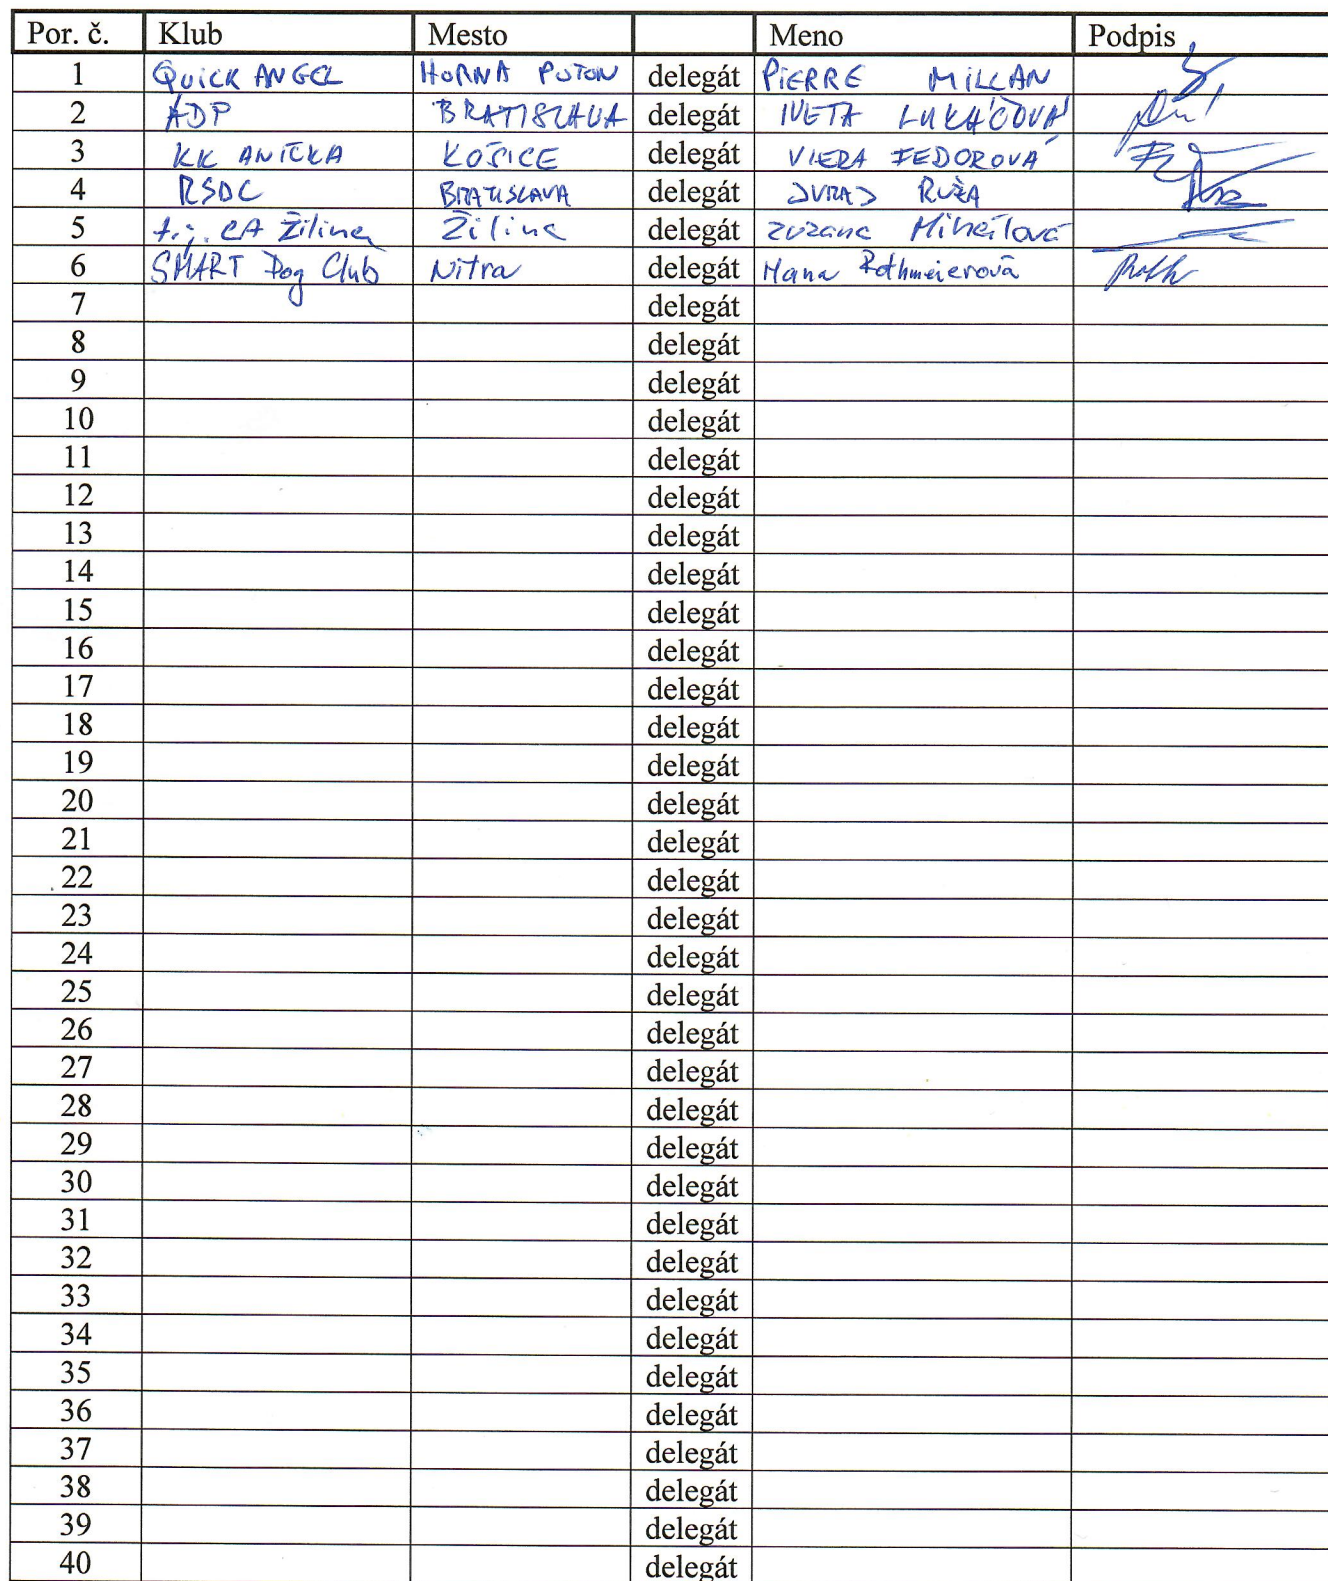 Por. č. Klub Mesto Meno Podpis
1 QUICK ANGEL HORNÁ POTON delegát PIERRE MILLAN
2 ADP BRATISLAVA delegát IVETA LUKÁČOVÁ
3 KK ANIČKA KOŠICE delegát VIERA FEDOROVÁ
4 RSDC BRATISLAVA delegát JURAJ RUŽA
5 CA Žilina Žilina delegát Zuzana Mihálová
6 SMART Dog Club Nitra delegát Hana Rothmeierová
7 delegát
8 delegát
9 delegát
10 delegát
11 delegát
12 delegát
13 delegát
14 delegát
15 delegát
16 delegát
17 delegát
18 delegát
19 delegát
20 delegát
21 delegát
22 delegát
23 delegát
24 delegát
25 delegát
26 delegát
27 delegát
28 delegát
29 delegát
30 delegát
31 delegát
32 delegát
33 delegát
34 delegát
35 delegát
36 delegát
37 delegát
38 delegát
39 delegát
40 delegát